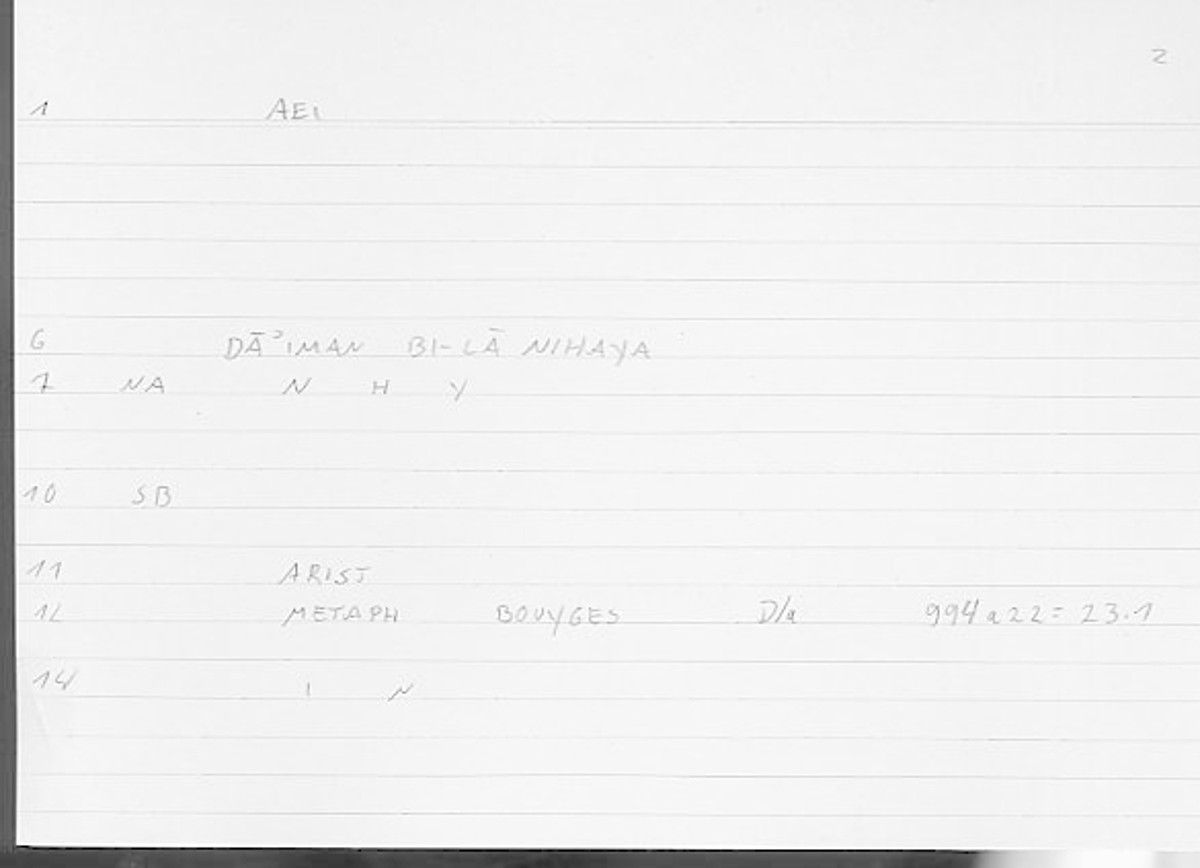 2
1 AEI
6 DĀʾIMAN BI-LĀ NIHAYA
7 NA N H Y
10 SB
11 ARIST
12 METAPH BOUYGES D/a 994a22=23.1
14 I N